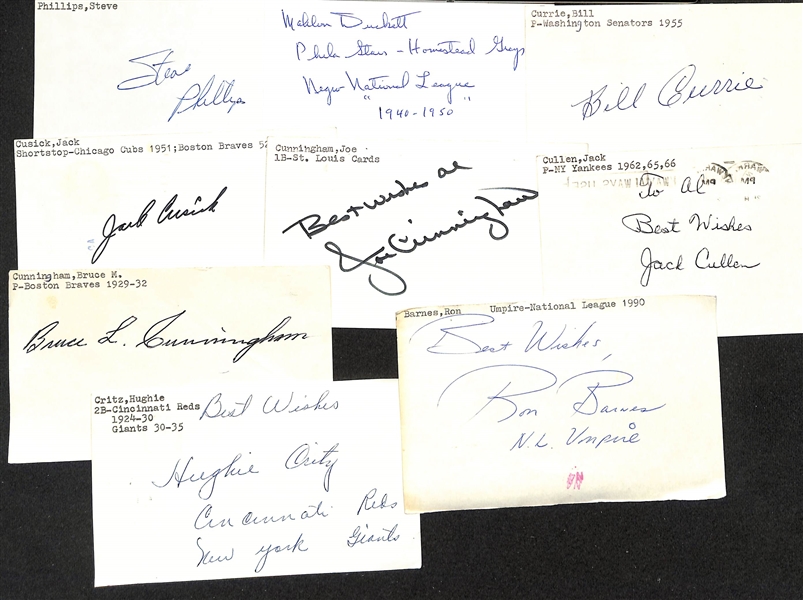 Phillips, Steve
Steve
Phillips
Mahlon Duckett
Phila Stars - Homestead Grays
Negro National League
"1940-1950"
Currie, Bill
P-Washington Senators 1955
Bill Currie
Cusick, Jack
Shortstop-Chicago Cubs 1951;Boston Braves 52
Jack Cusick
Cunningham, Joe
1B-St. Louis Cards
Best Wishes Al
Joe Cunningham
Cullen, Jack
P-NY Yankees 1962,65,66
To Al
Best Wishes
Jack Cullen
Cunningham, Bruce M.
P-Boston Braves 1929-32
Bruce L. Cunningham
Barnes, Ron Umpire-National League 1990
Best Wishes,
Ron Barnes
N.L. Umpire
Critz, Hughie
2B-Cincinnati Reds
1924-30
Giants 30-35
Best Wishes
Hughie Critz
Cincinnati Reds
New York Giants